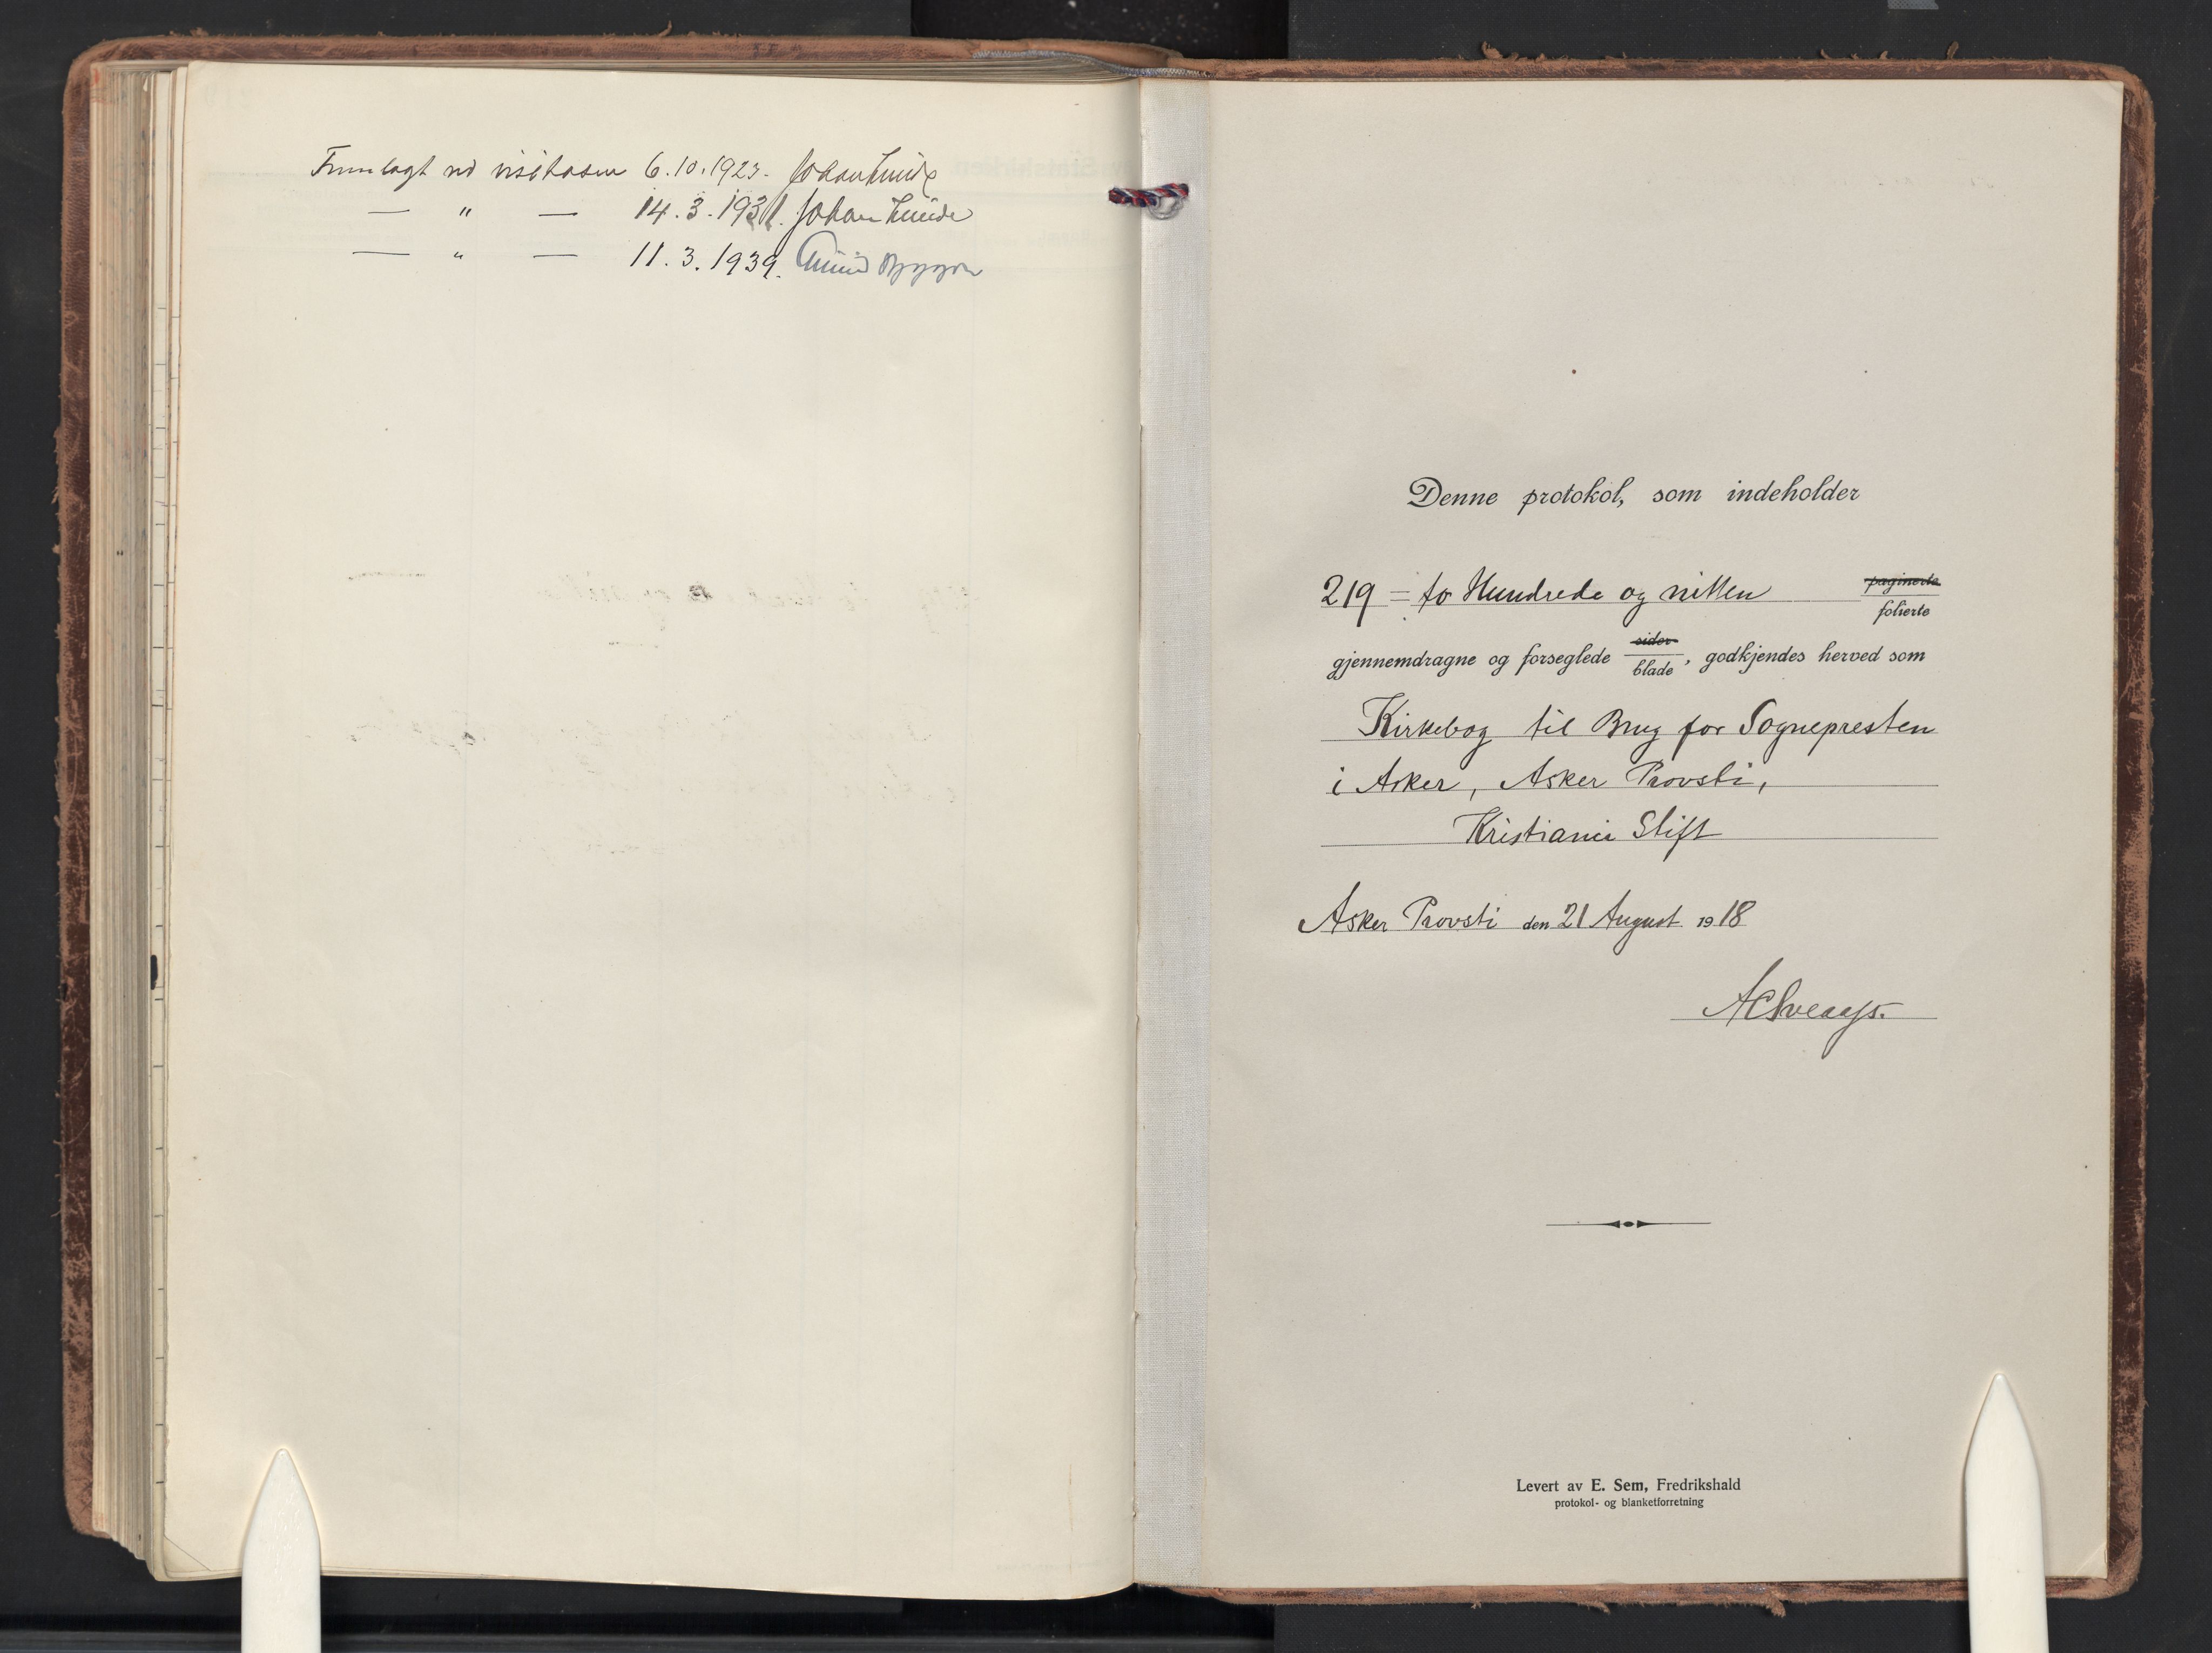 Fremlagt ved visitasen 6.10.1923. Johan Lunde
— " — 14.3.1931. Johan Lunde
— " — 11.3.1939.
Denne protokol, som indeholder
219 = to Hundrede og nitten paginerte
folierte
gjennemdragne og forseglede sider
blade, godkjendes herved som
Kirkebog til Brug for Sognepresten
i Asker, Asker Provsti,
Kristiania Stift
Asker Provsti den 21 August 1918
Levert av E. Sem, Fredrikshald
protokol- og blanketforretning